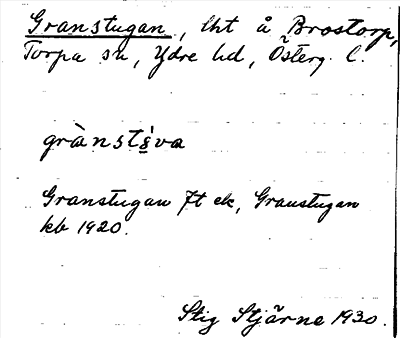 Granstugan, lht å Brostorp,
Torpa sn, Ydre hd, Österg. l.
grànstɛ́va
Granstugan Jt ek, Granstugan
kb 1920.
Stig Stjärne 1930.